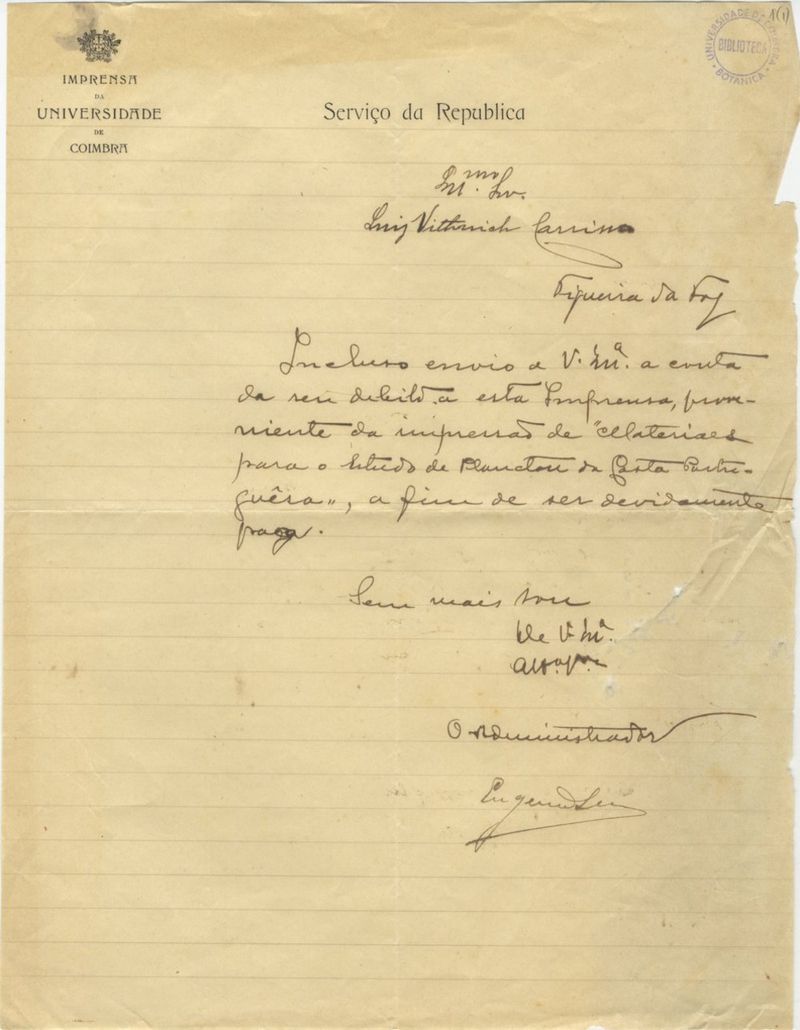 IMPRENSA
DA
UNIVERSIDADE
DE
COIMBRA
Serviço da Republica
UNIVERSIDADE DE COIMBRA
BIBLIOTECA
BOTANICA
1(1)
Snr.
Luiz Wittnich Carrisso
Figueira da Foz
Incluso envio a V. Sª. a conta
da seu debito a esta Imprensa, prove-
niente da impressão de "Materiaes
para o Estudo de Plancton da Costa Portu-
guêsa„, a fim de ser devidamente
paga.
Sem mais sou
De V. Sª.
O Administrador